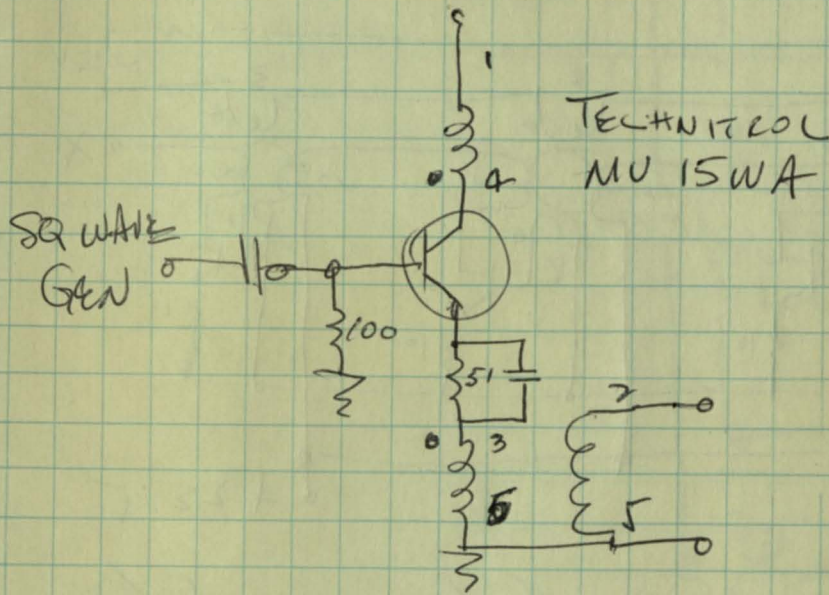 1
TECHNITROL
MU 15WA
4
SQ WAVE
GEN
100
51
2
3
6
5